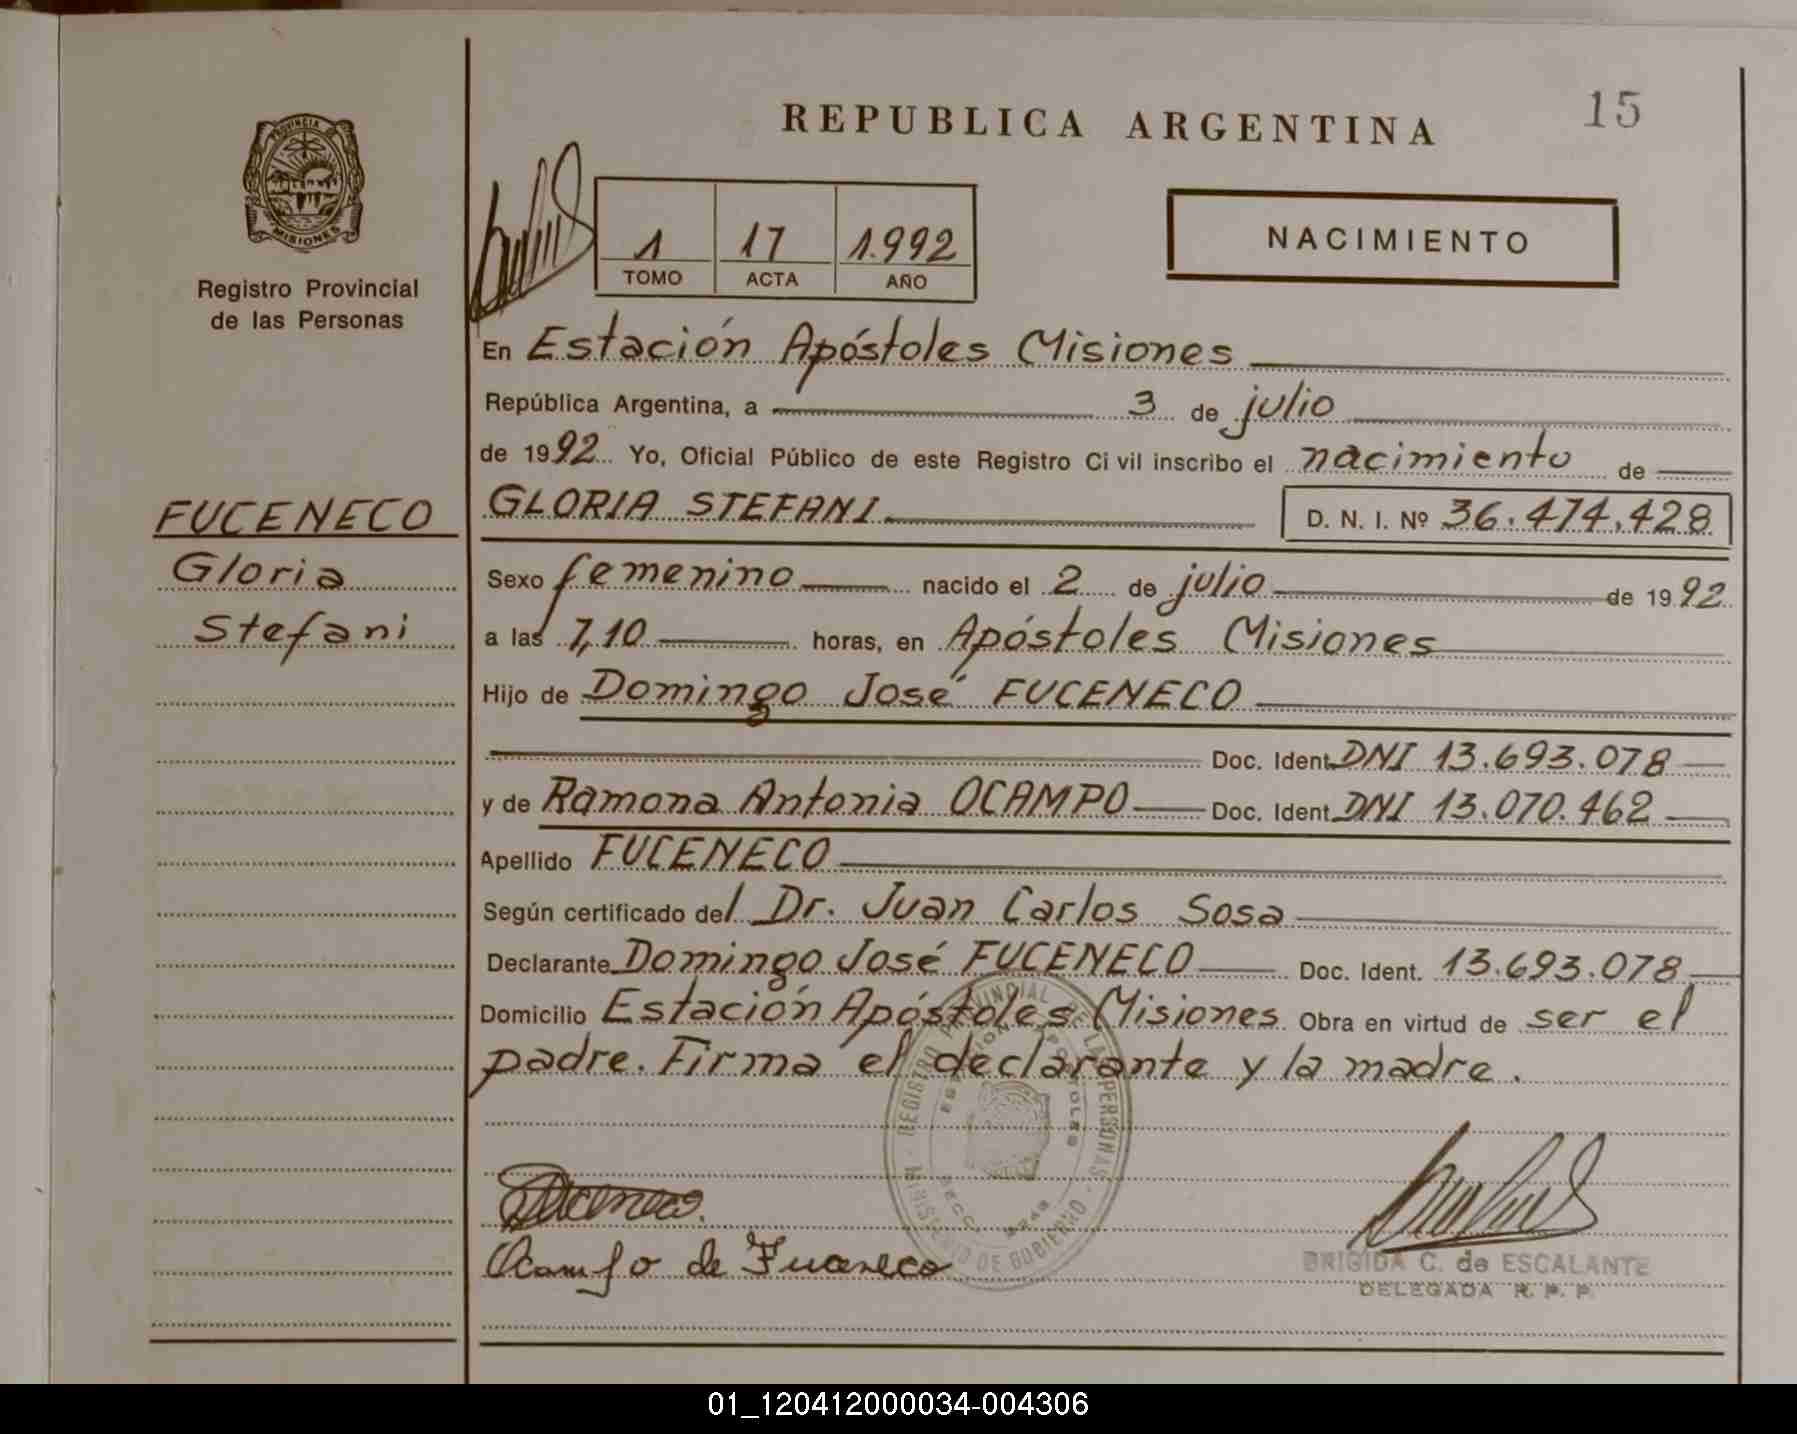 15
REPUBLICA ARGENTINA
PROVINCIA DE
MISIONES
Registro Provincial
de las Personas
1 17 1.992
TOMO ACTA AÑO
NACIMIENTO
En Estación Apóstoles Misiones
República Argentina, a 3 de julio
de 1992 Yo, Oficial Público de este Registro Civil inscribo el nacimiento de
FUCENECO
Gloria
Stefani
GLORIA STEFANI D. N. I. Nº 36.474.428
Sexo femenino nacido el 2 de julio de 1992
a las 7,10 horas, en Apóstoles Misiones
Hijo de Domingo José FUCENECO
Doc. Ident. DNI 13.693.078
y de Ramona Antonia OCAMPO Doc. Ident. DNI 13.070.462
Apellido FUCENECO
Según certificado del Dr. Juan Carlos Sosa
Declarante Domingo José FUCENECO Doc. Ident. 13.693.078
Domicilio Estación Apóstoles Misiones Obra en virtud de ser el
padre. Firma el declarante y la madre.
REGISTRO PROVINCIAL DE LAS PERSONAS
MINISTERIO DE GOBIERNO
ESTACION APOSTOLES
Fuceneco
Ocampo de Fuceneco
BRIGIDA C. de ESCALANTE
DELEGADA R. P. P.
01_120412000034-004306